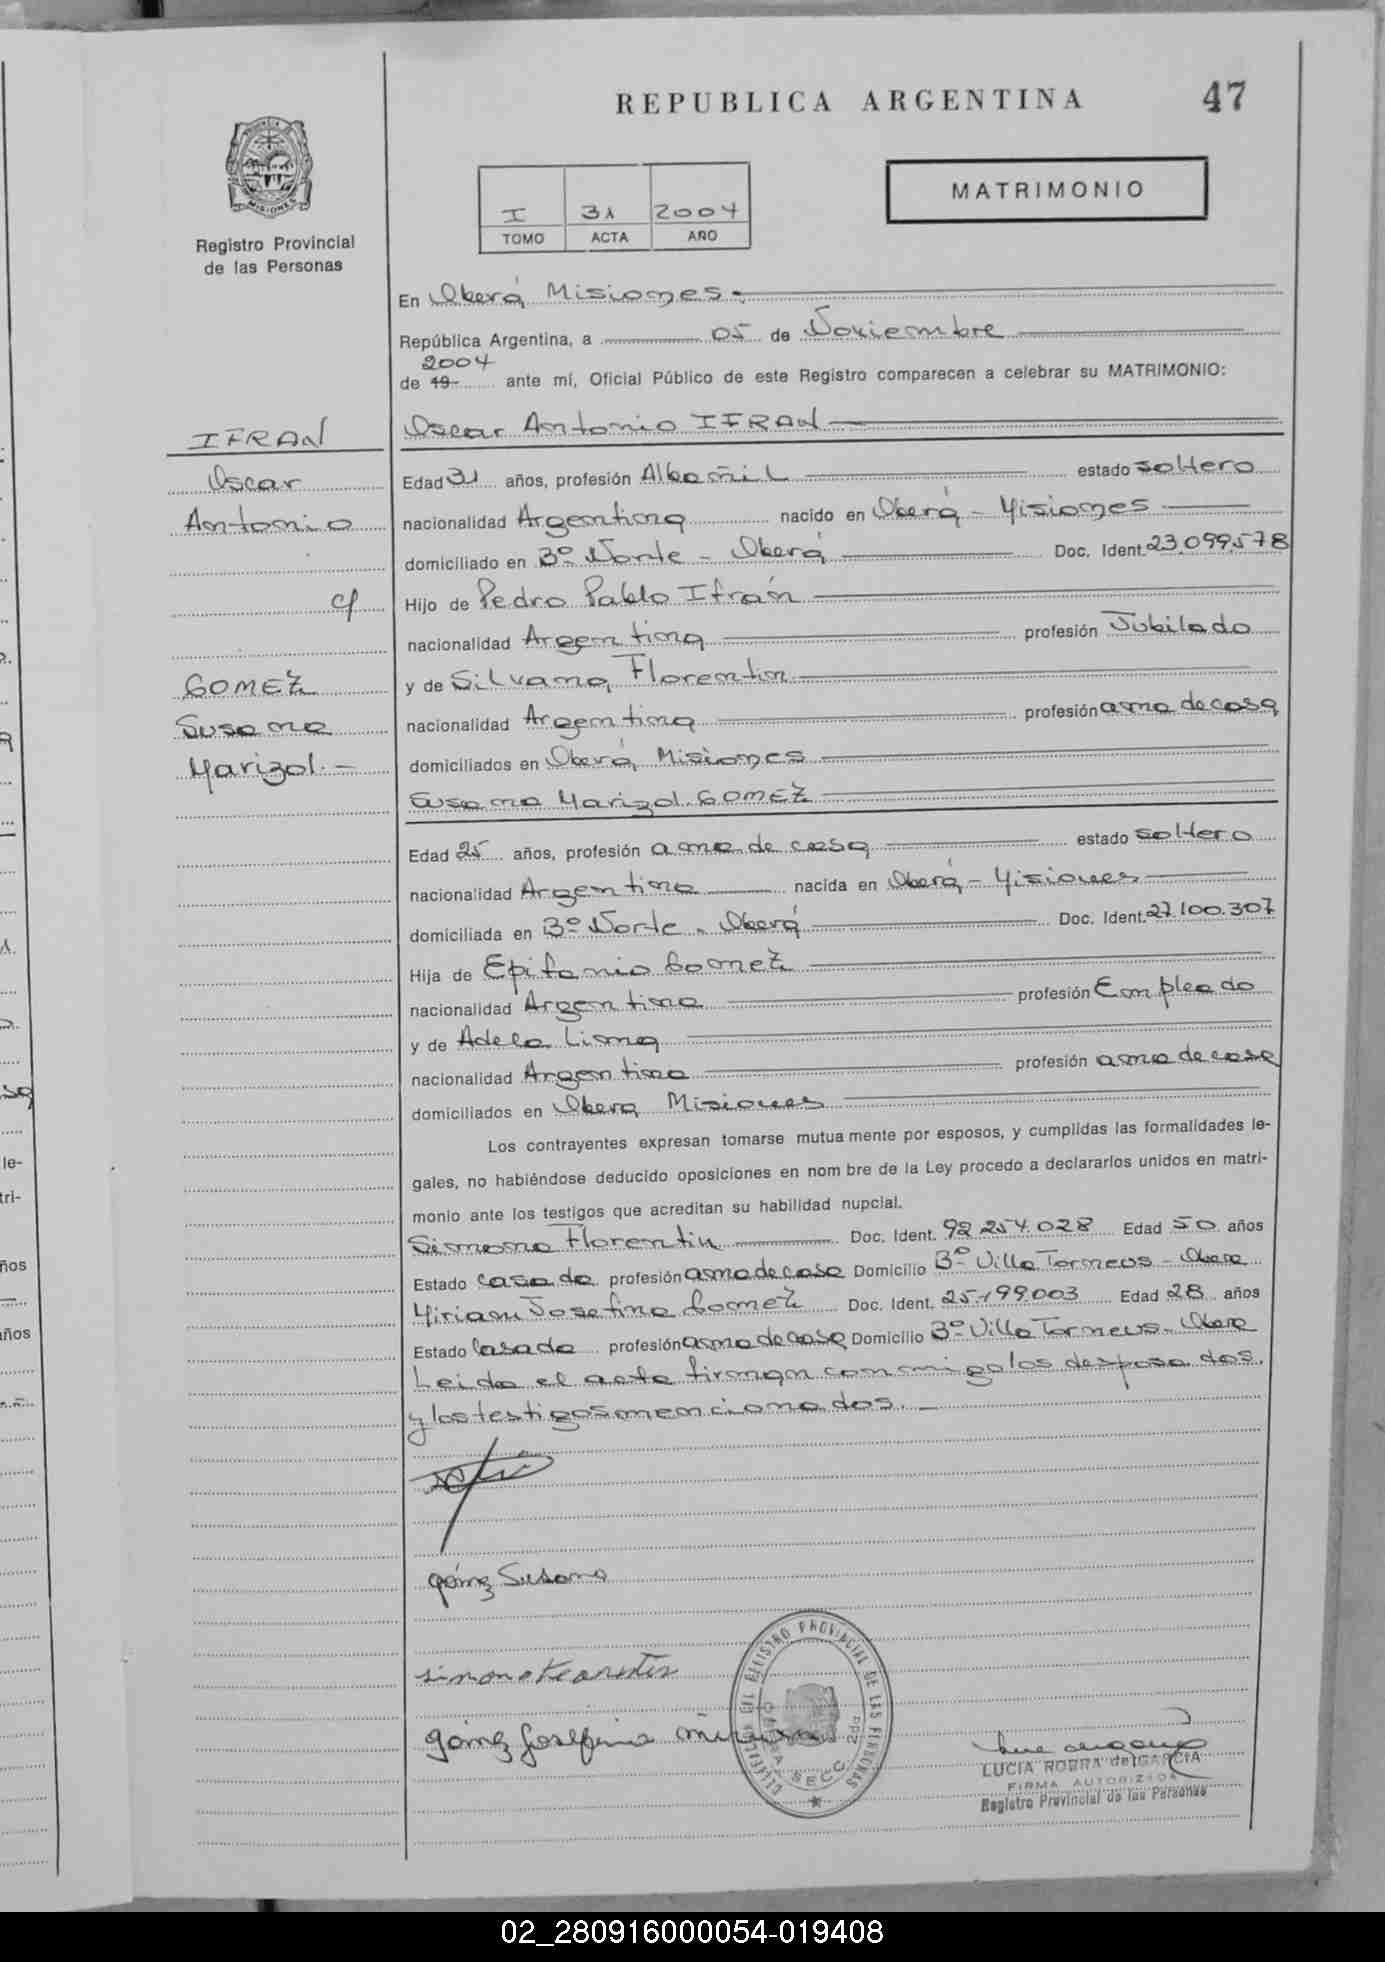 REPUBLICA ARGENTINA
47
PROVINCIA DE
MISIONES
Registro Provincial
de las Personas
I 31 2004
TOMO ACTA AÑO
MATRIMONIO
En Oberá Misiones.
República Argentina, a 05 de Noviembre
2004
de 19 ante mí, Oficial Público de este Registro comparecen a celebrar su MATRIMONIO:
IFRAN
Oscar
Antonio
c/
GOMEZ
Susana
Marizol.-
Oscar Antonio IFRAN
Edad 31 años, profesión Albañil estado soltero
nacionalidad Argentina nacido en Oberá - Misiones
domiciliado en 3º Norte - Oberá Doc. Ident. 23.099.578
Hijo de Pedro Pablo Ifrán
nacionalidad Argentina profesión Jubilado
y de Silvana Florentin
nacionalidad Argentina profesión ama de casa
domiciliados en Oberá, Misiones
Susana Marizol GOMEZ
Edad 25 años, profesión ama de casa estado soltera
nacionalidad Argentina nacida en Oberá - Misiones
domiciliada en 3º Norte - Oberá Doc. Ident. 27.100.307
Hija de Epifanio Gomez
nacionalidad Argentina profesión Empleado
y de Adela Lima
nacionalidad Argentina profesión ama de casa
domiciliados en Obera Misiones
Los contrayentes expresan tomarse mutua mente por esposos, y cumplidas las formalidades le-
gales, no habiéndose deducido oposiciones en nom bre de la Ley procedo a declararlos unidos en matri-
monio ante los testigos que acreditan su habilidad nupcial.
Simona Florentin Doc. Ident. 92.254.028 Edad 50 años
Estado casada profesión ama de casa Domicilio 3º Villa Torneus - Obera
Miriam Josefina Gomez Doc. Ident. 25.199.003 Edad 28 años
Estado Casada profesión ama de casa Domicilio 3º Villa Torneus - Obera
Leida el acta firman conmigo los desposados
y los testigos mencionados. -
gómez Susana
gómez Josefina Miriam
REGISTRO PROVINCIAL DE LAS PERSONAS
OBERA SECC. 2da
LUCIA ROBRA de GARCIA
FIRMA AUTORIZADA
Registro Provincial de las Personas
02_280916000054-019408